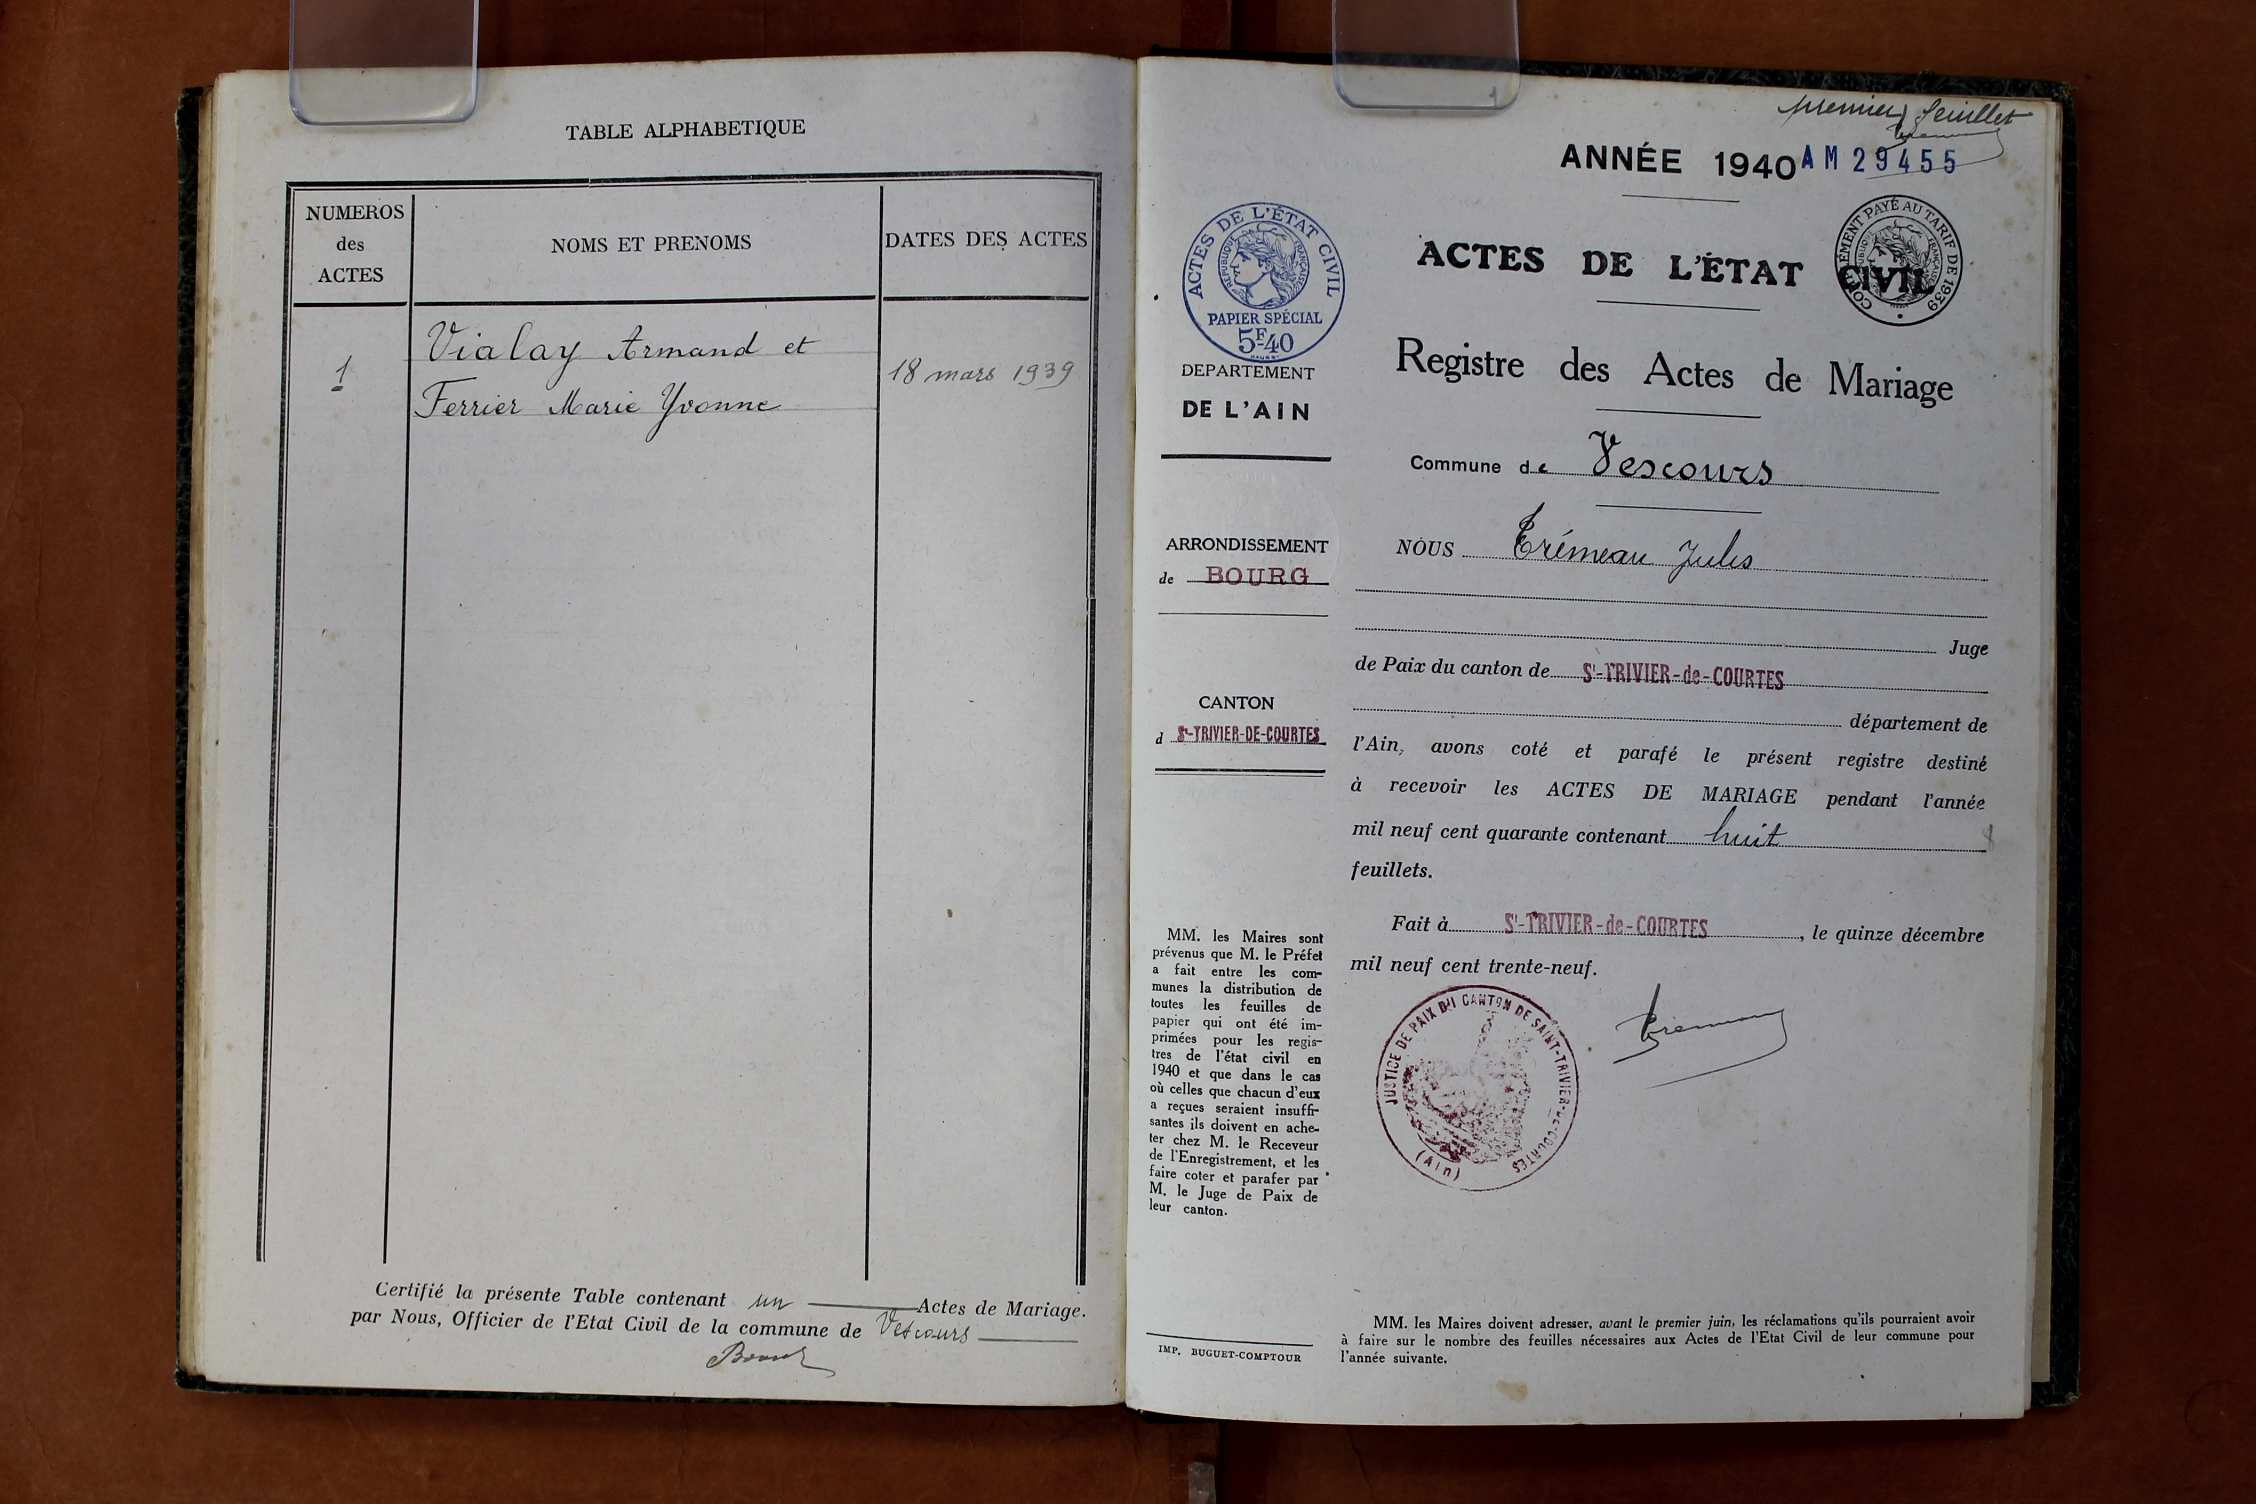 TABLE ALPHABETIQUE
NUMEROS
des
ACTES
NOMS ET PRENOMS
DATES DES ACTES
1
Vialay Armand et
Ferrier Marie Yvonne
18 mars 1939
Certifié la présente Table contenant un Actes de Mariage.
par Nous, Officier de l'Etat Civil de la commune de Vescours
1
premier feuillet
ANNÉE 1940
AM 29455
ACTES DE L'ÉTAT CIVIL
RÉPUBLIQUE FRANÇAISE
PAPIER SPÉCIAL
5F40
COMPLÉMENT PAYÉ AU TARIF DE 1939
ACTES DE L'ÉTAT CIVIL
DEPARTEMENT
DE L'AIN
Registre des Actes de Mariage
Commune de Vescours
ARRONDISSEMENT
de BOURG
CANTON
d St-TRIVIER-DE-COURTES
NOUS Trémeau Jules
Juge
de Paix du canton de St-TRIVIER-de-COURTES
département de
l'Ain, avons coté et parafé le présent registre destiné
à recevoir les ACTES DE MARIAGE pendant l'année
mil neuf cent quarante contenant huit
feuillets.
Fait à St-TRIVIER-de-COURTES, le quinze décembre
mil neuf cent trente-neuf.
JUSTICE DE PAIX DU CANTON DE SAINT-TRIVIER-DE-COURTES
(Ain)
MM. les Maires sont
prévenus que M. le Préfet
a fait entre les com-
munes la distribution de
toutes les feuilles de
papier qui ont été im-
primées pour les regis-
tres de l'état civil en
1940 et que dans le cas
où celles que chacun d'eux
a reçues seraient insuffi-
santes ils doivent en ache-
ter chez M. le Receveur
de l'Enregistrement, et les
faire coter et parafer par
M. le Juge de Paix de
leur canton.
IMP. BUGUET-COMPTOUR
MM. les Maires doivent adresser, avant le premier juin, les réclamations qu'ils pourraient avoir
à faire sur le nombre des feuilles nécessaires aux Actes de l'Etat Civil de leur commune pour
l'année suivante.